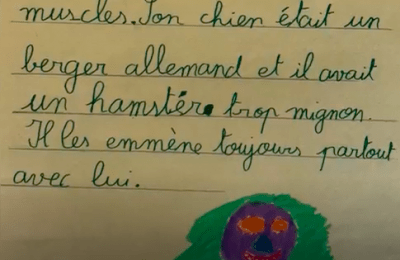 muscles. Son chien était un
berger allemand et il avait
un hamster trop mignon.
Il les emmène toujours partout
avec lui.